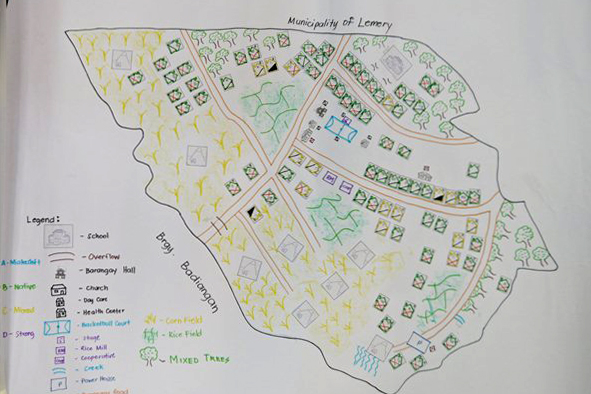 Municipality of Lemery
Brgy. Badiangan
Legend:
- School
- Overflow
- Barangay Hall
- Church
- Day Care
- Health Center
- Basketball Court
- Stage
- Rice Mill
- Cooperative
- Creek
- Power House
B- Native
C- Mixed
D- Strong
- Corn Field
- Rice Field
- MIXED TREES
P